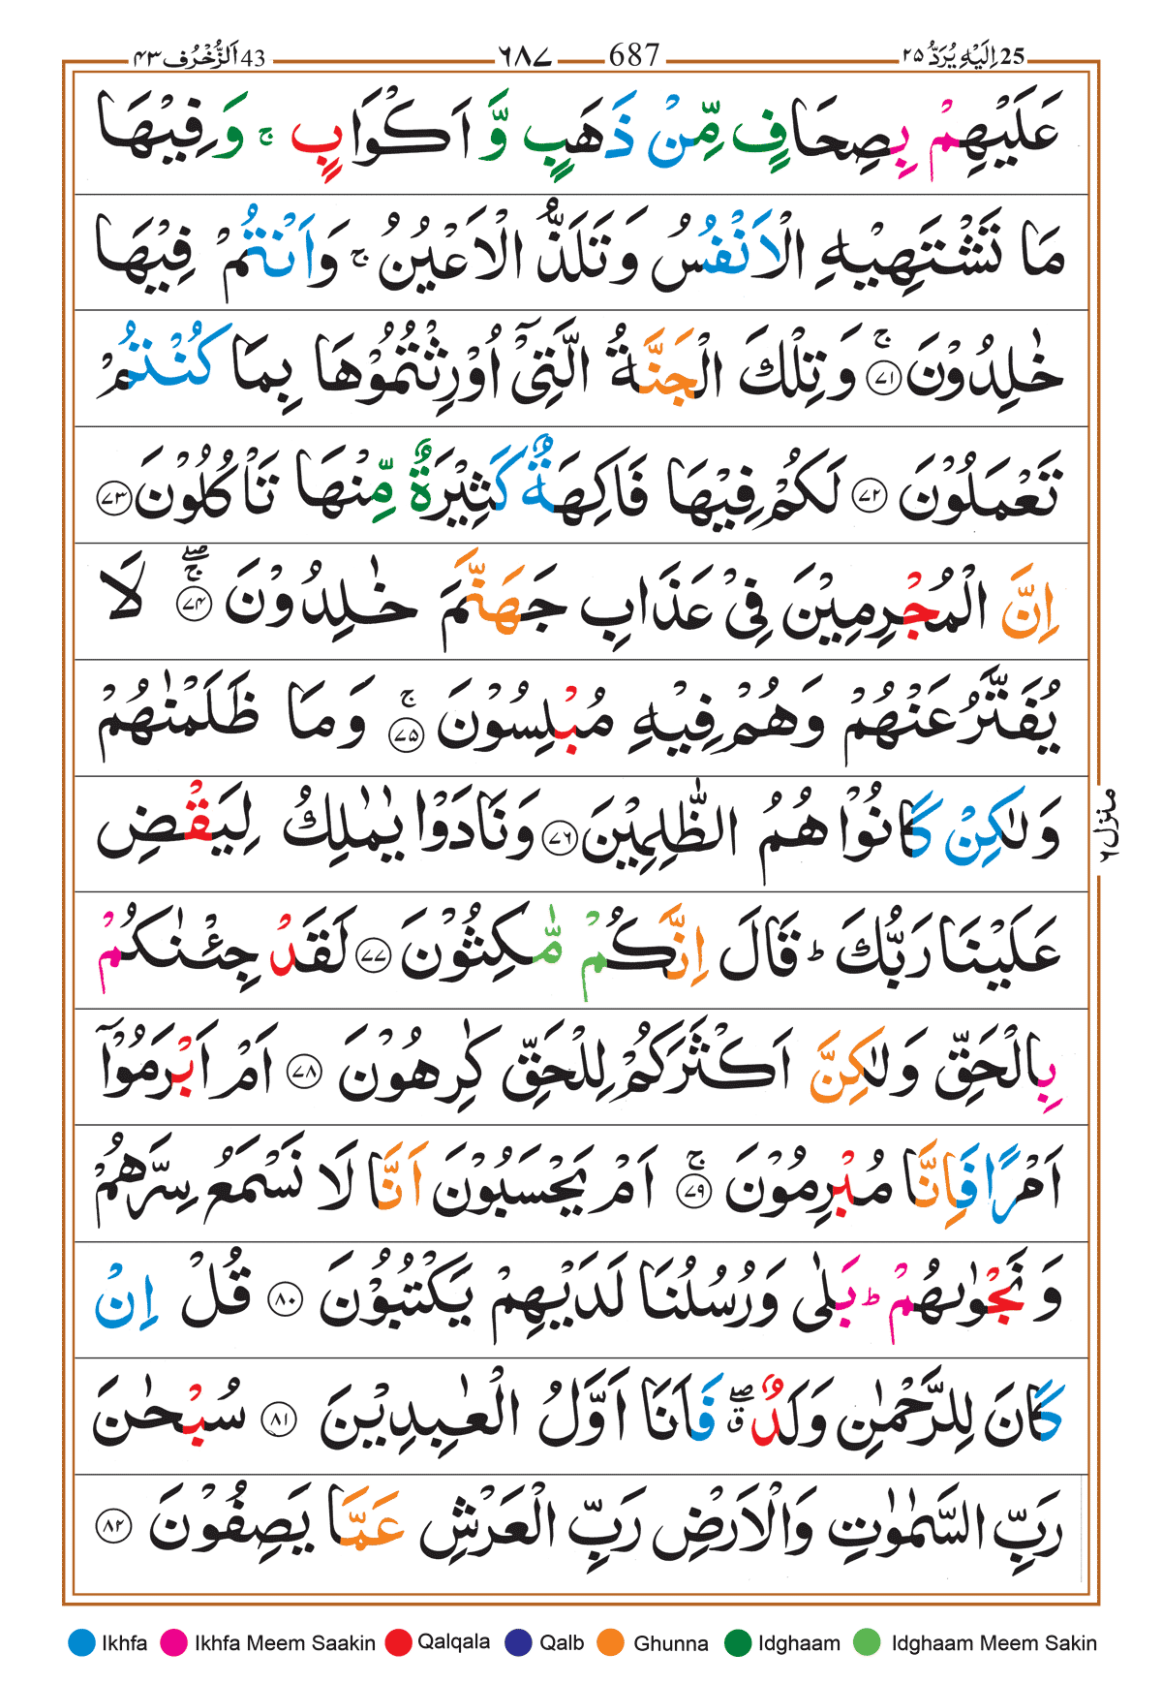 43 اَلزُّخْرُف ۴۳ ۶۸۷ 687 25 اِلَیْهِ یُرَدُّ ۲۵
عَلَیْهِمْ بِصِحَافٍ مِّنْ ذَهَبٍ وَّ اَكْوَابٍ ۚ وَ فِیْهَا
مَا تَشْتَهِیْهِ الْاَنْفُسُ وَ تَلَذُّ الْاَعْیُنُ ۚ وَ اَنْتُمْ فِیْهَا
خٰلِدُوْنَ ۚ ﴿۷۱﴾ وَ تِلْكَ الْجَنَّةُ الَّتِیْۤ اُوْرِثْتُمُوْهَا بِمَا كُنْتُمْ
تَعْمَلُوْنَ ﴿۷۲﴾ لَكُمْ فِیْهَا فَاكِهَةٌ كَثِیْرَةٌ مِّنْهَا تَاْكُلُوْنَ ﴿۷۳﴾
اِنَّ الْمُجْرِمِیْنَ فِیْ عَذَابِ جَهَنَّمَ خٰلِدُوْنَ ۚۖ ﴿۷۴﴾ لَا
یُفَتَّرُ عَنْهُمْ وَ هُمْ فِیْهِ مُبْلِسُوْنَ ۚ ﴿۷۵﴾ وَ مَا ظَلَمْنٰهُمْ
وَ لٰكِنْ كَانُوْا هُمُ الظّٰلِمِیْنَ ﴿۷۶﴾ وَ نَادَوْا یٰمٰلِكُ لِیَقْضِ
عَلَیْنَا رَبُّكَ ؕ قَالَ اِنَّكُمْ مّٰكِثُوْنَ ﴿۷۷﴾ لَقَدْ جِئْنٰكُمْ
بِالْحَقِّ وَ لٰكِنَّ اَكْثَرَكُمْ لِلْحَقِّ كٰرِهُوْنَ ﴿۷۸﴾ اَمْ اَبْرَمُوْۤا
اَمْرًا فَاِنَّا مُبْرِمُوْنَ ۚ ﴿۷۹﴾ اَمْ یَحْسَبُوْنَ اَنَّا لَا نَسْمَعُ سِرَّهُمْ
وَ نَجْوٰىهُمْ ؕ بَلٰی وَ رُسُلُنَا لَدَیْهِمْ یَكْتُبُوْنَ ﴿۸۰﴾ قُلْ اِنْ
كَانَ لِلرَّحْمٰنِ وَلَدٌ ۖۗ فَاَنَا اَوَّلُ الْعٰبِدِیْنَ ﴿۸۱﴾ سُبْحٰنَ
رَبِّ السَّمٰوٰتِ وَ الْاَرْضِ رَبِّ الْعَرْشِ عَمَّا یَصِفُوْنَ ﴿۸۲﴾
منزل ۶
Ikhfa Ikhfa Meem Saakin Qalqala Qalb Ghunna Idghaam Idghaam Meem Sakin